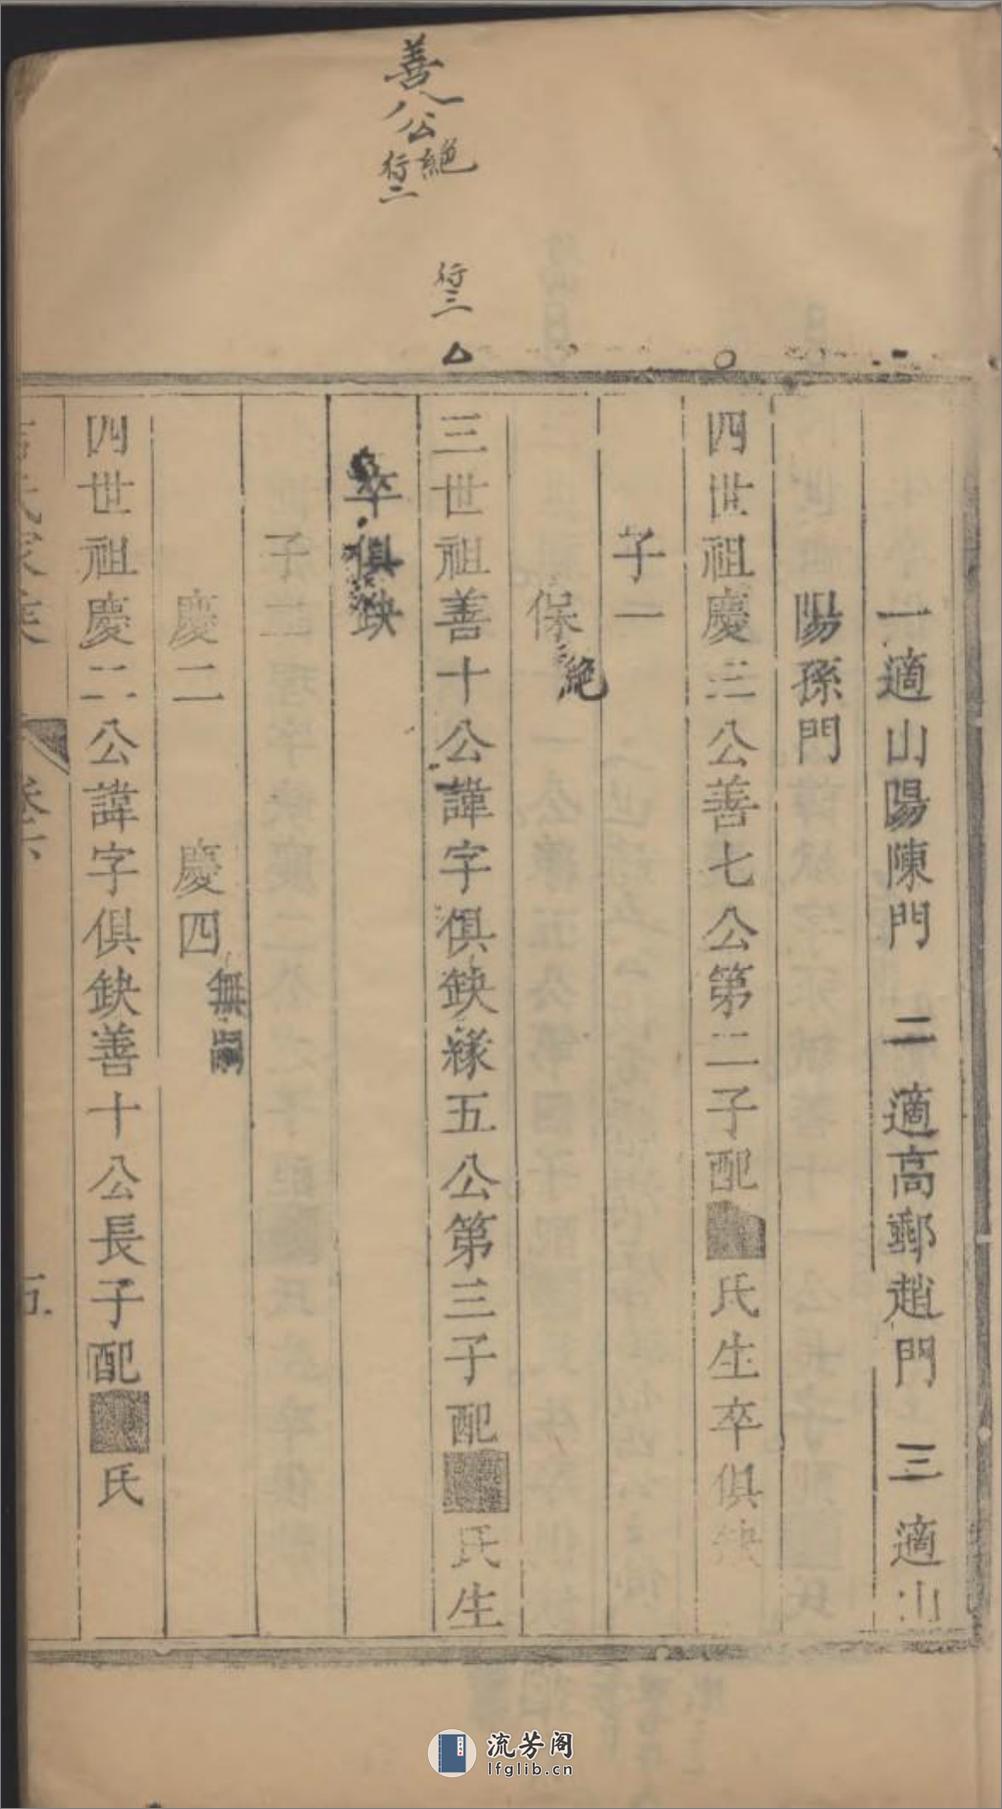 善八公絕
行二
行三
一適山陽陳門 二適高郵趙門 三適山
陽孫門
四世祖慶三公善七公第二子配 氏生卒俱缺
子一
保三絕
三世祖善十公諱字俱缺緣五公第三子配 氏生
卒俱缺
子二
慶二 慶四無嗣
四世祖慶二公諱字俱缺善十公長子配 氏
卷六
五
流芳阁
lfglib.cn